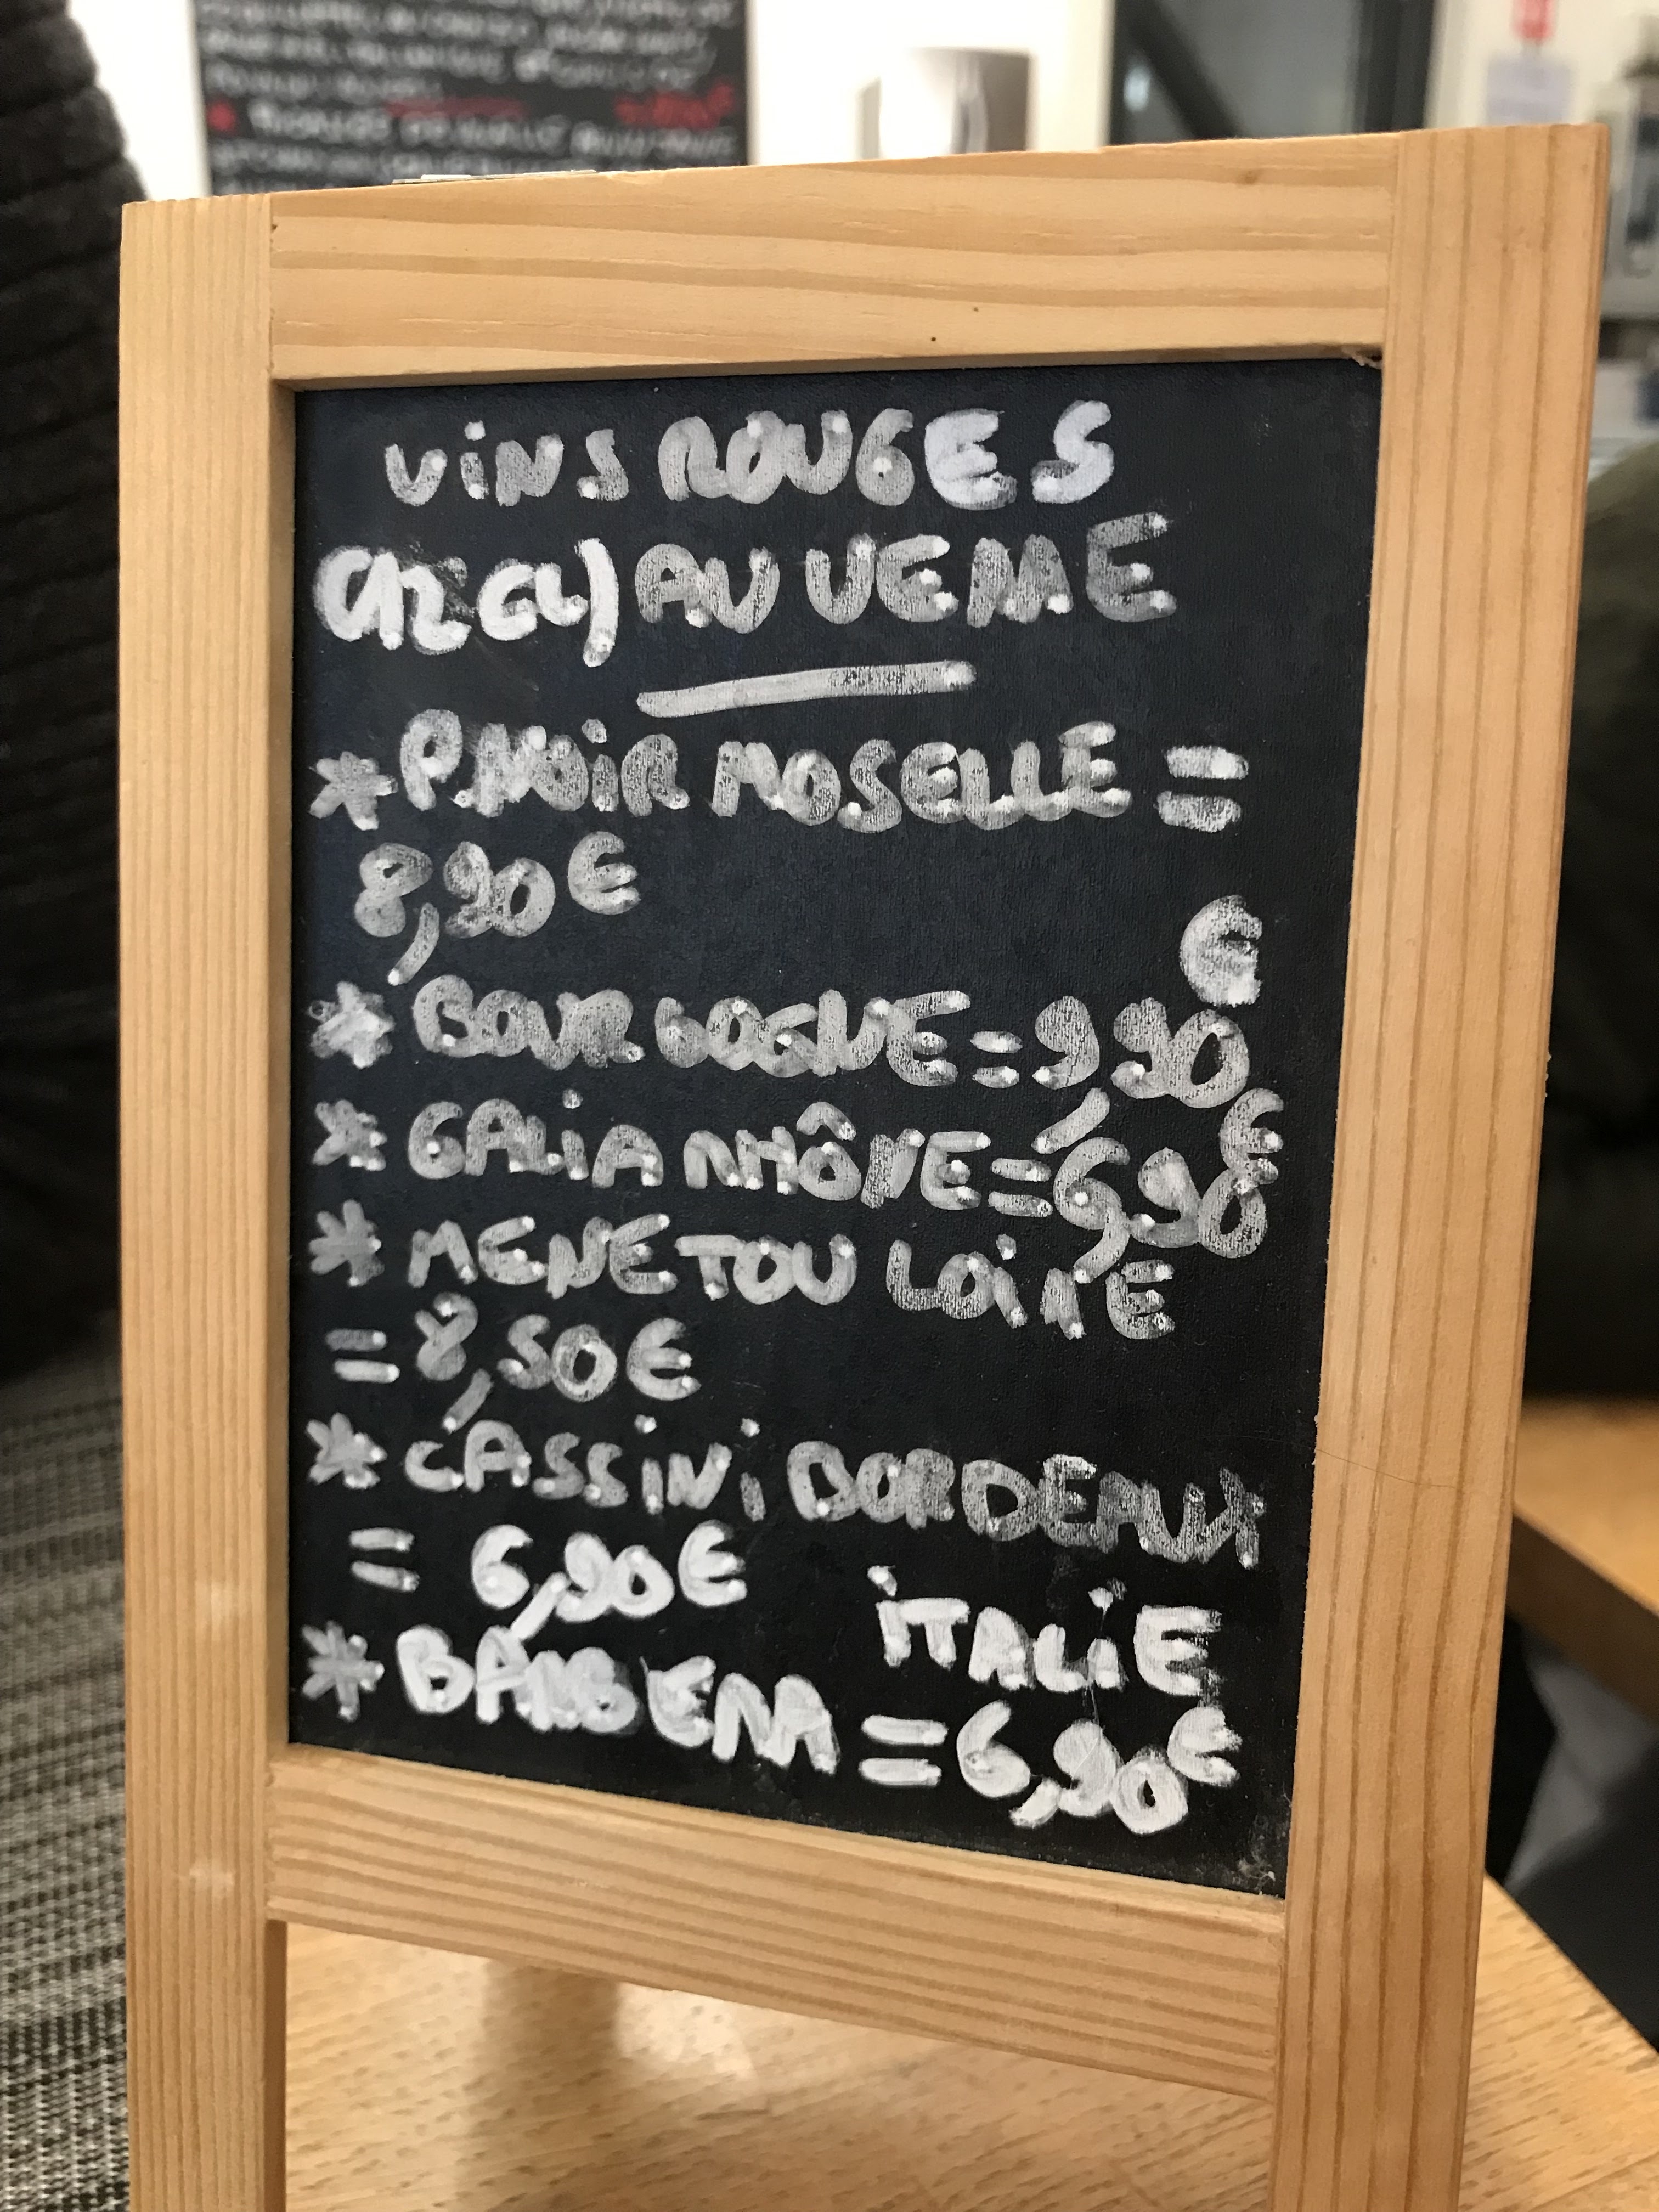 VINS ROUGES
(12 CL) AU VERRE
* P. NOIR MOSELLE =
8,90 €
* BOURGOGNE = 9,90 €
* GALIA RHÔNE = 6,90 €
* MENETOU LOIRE
= 8,50 €
* CASSINI BORDEAUX
= 6,90 €
ITALIE
* BARBERA = 6,90 €